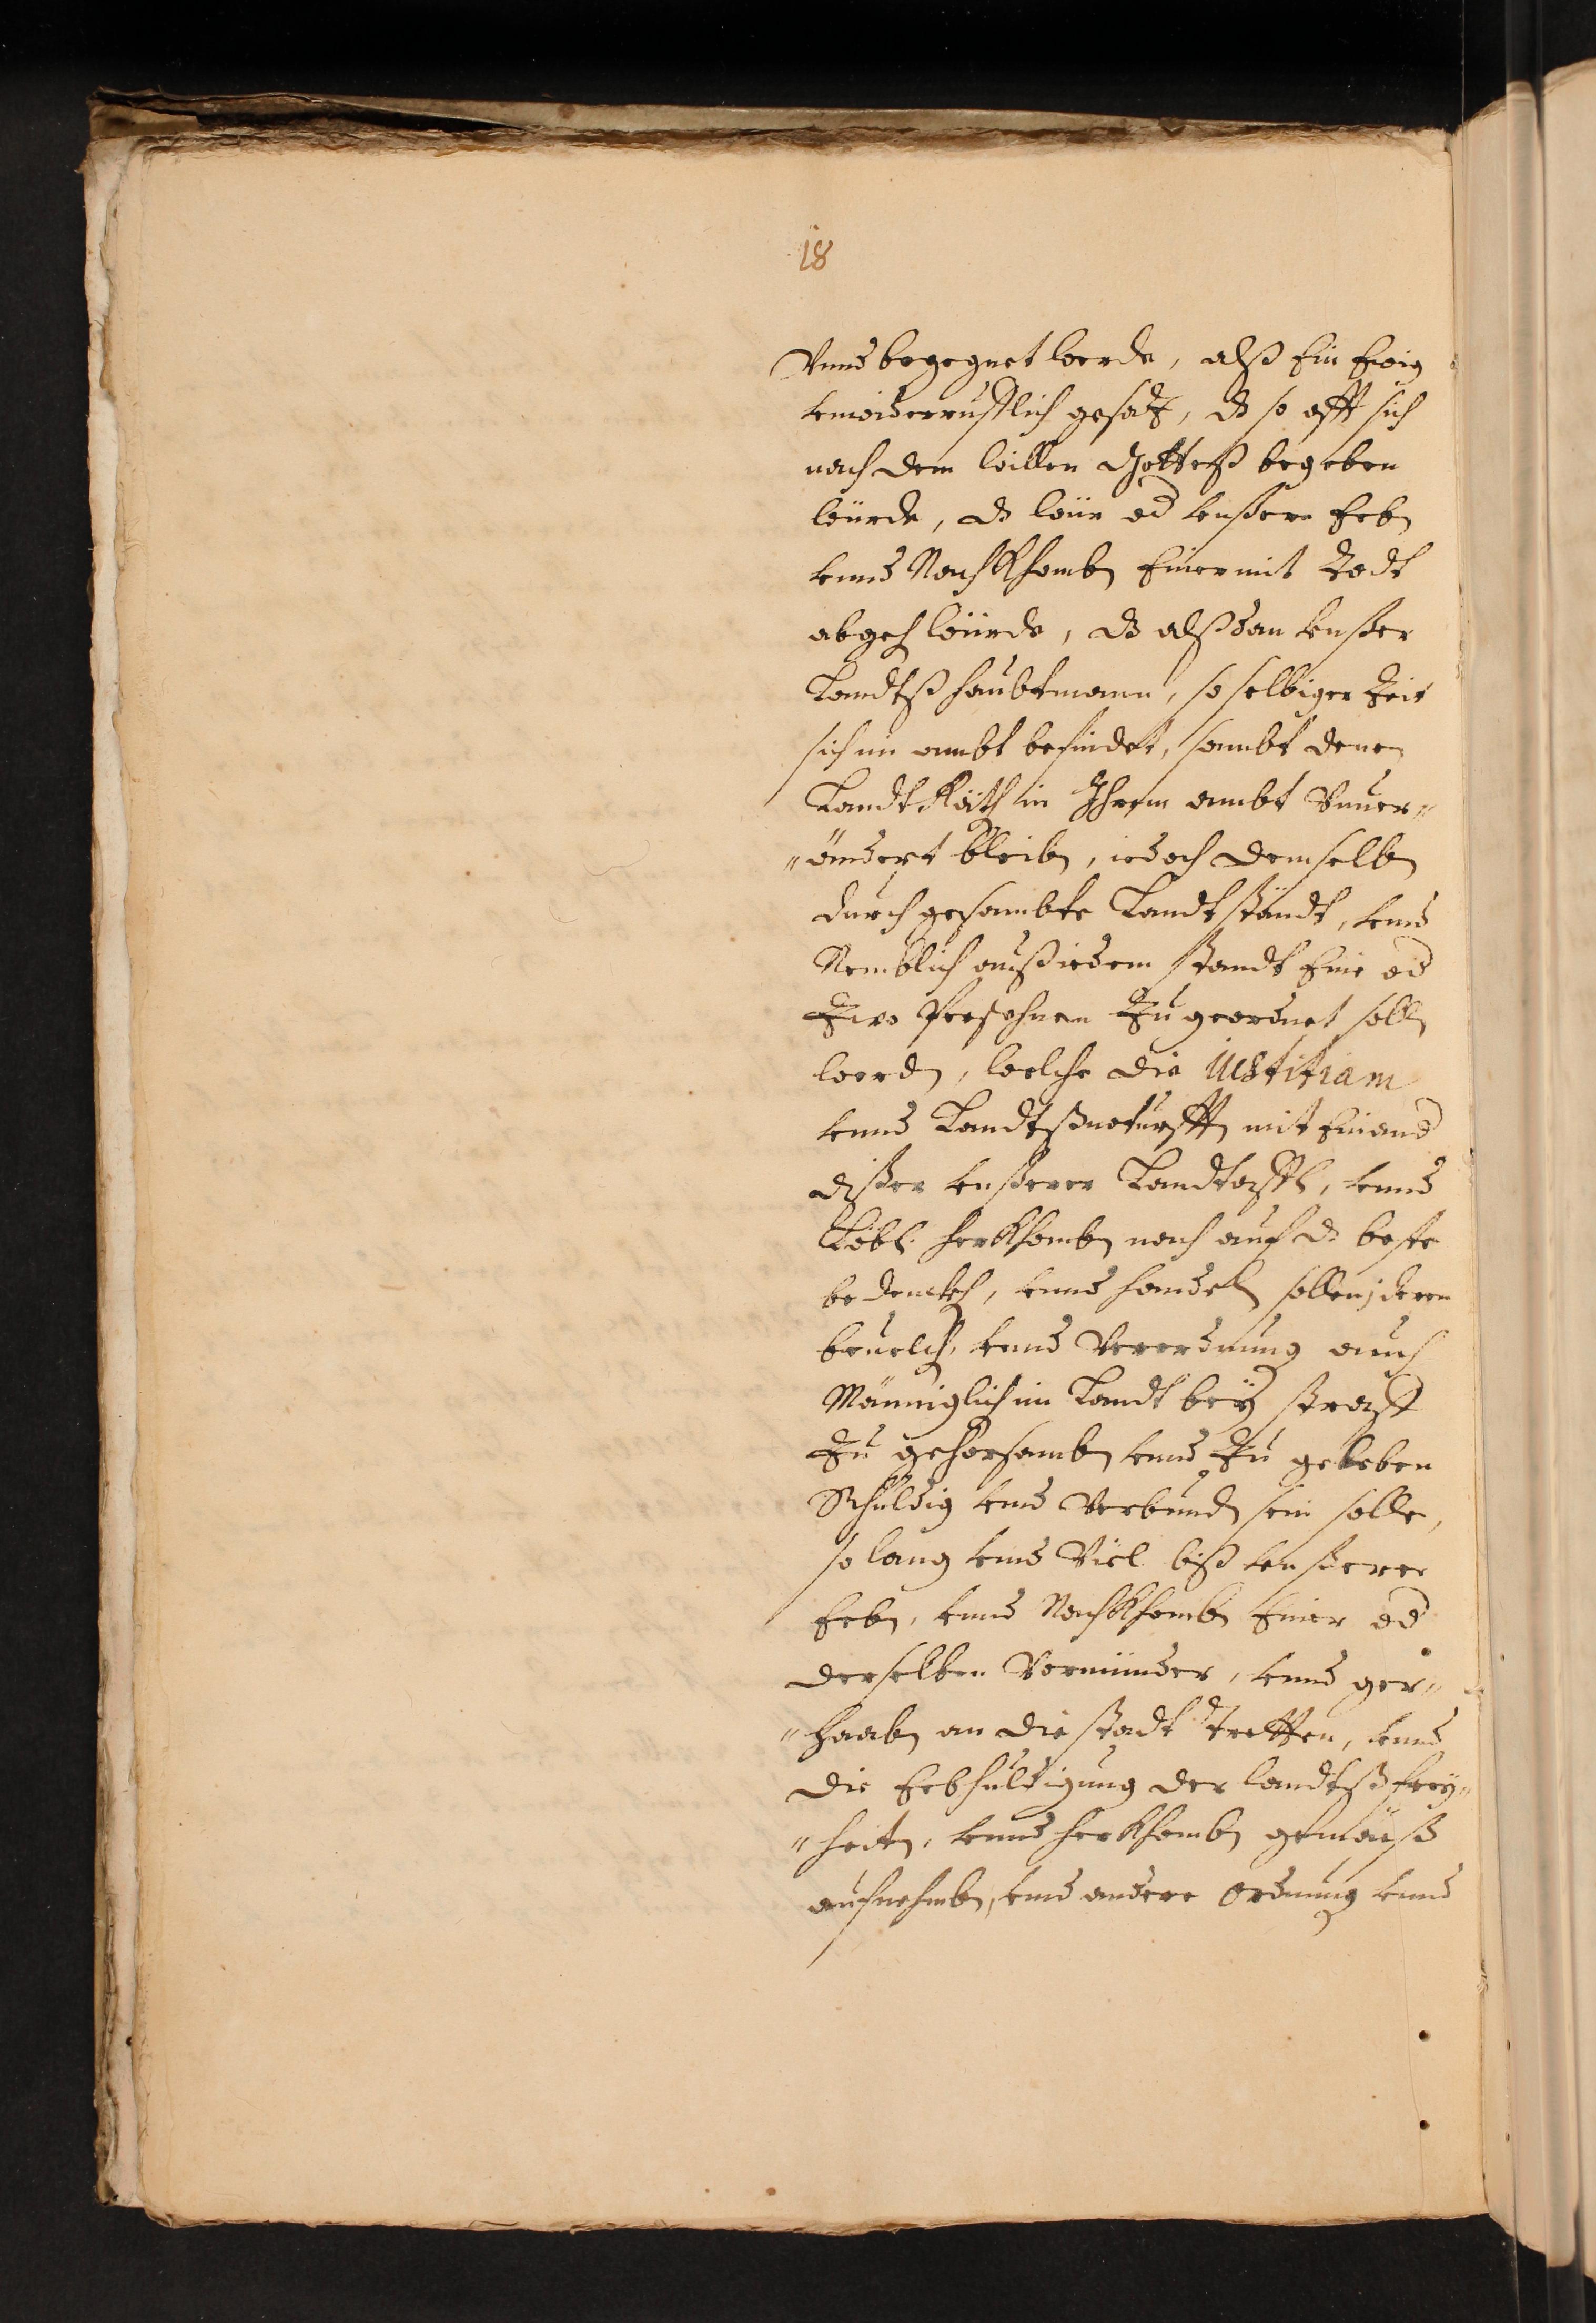 18
Vnns begegnet werde, alß Ein Ewig
vnwiderrufflich gesatz, dz so offt sich
nach dem willen Gotteß begeben
würde, dz wür od vnßere Erbn
vnnd Nachkhombn Einer mit Todt
abgeh würde, dz alßdan vnßer
Landtßhaubtmann, so selbiger Zeit
sich im ambt befindet, sambt denen
Landt Räth in Ihrem ambt Vnuer„
„ändert bleibn, iedoch demselbn
durch gesambte Landtständt, vnnd
Nemblich auß iedem standt Eine od
Zwo Persohnen Zu geordnet solln
werdn, welche die Iustitiam
vnnd Landtßnoturfftn mit Einand
dißer vnßerer Landtaffl, vnnd
Löbl: herkhombn nach auf dz beste
bedenckh, vnnd handeln sollen; deren
beuelch, vnnd Verordnung auch
Männiglich im Landt beÿ straff
Zu gehorsambn vnnd Zu geleben
Schuldig vnnd Verbundn sein solle,
so lang vnnd Viel biß vnßerer
Erbn, vnnd Nachkhombn Einer od
derselben Vormünder, vnnd ger„
„haabn an die stadt Tretten, vnnd
die Erbhuldigung der landtßfreÿ„
„heitn, vnnd herkhombn gemäß
aufnehmbn, vnnd andere Ordnung vnnd